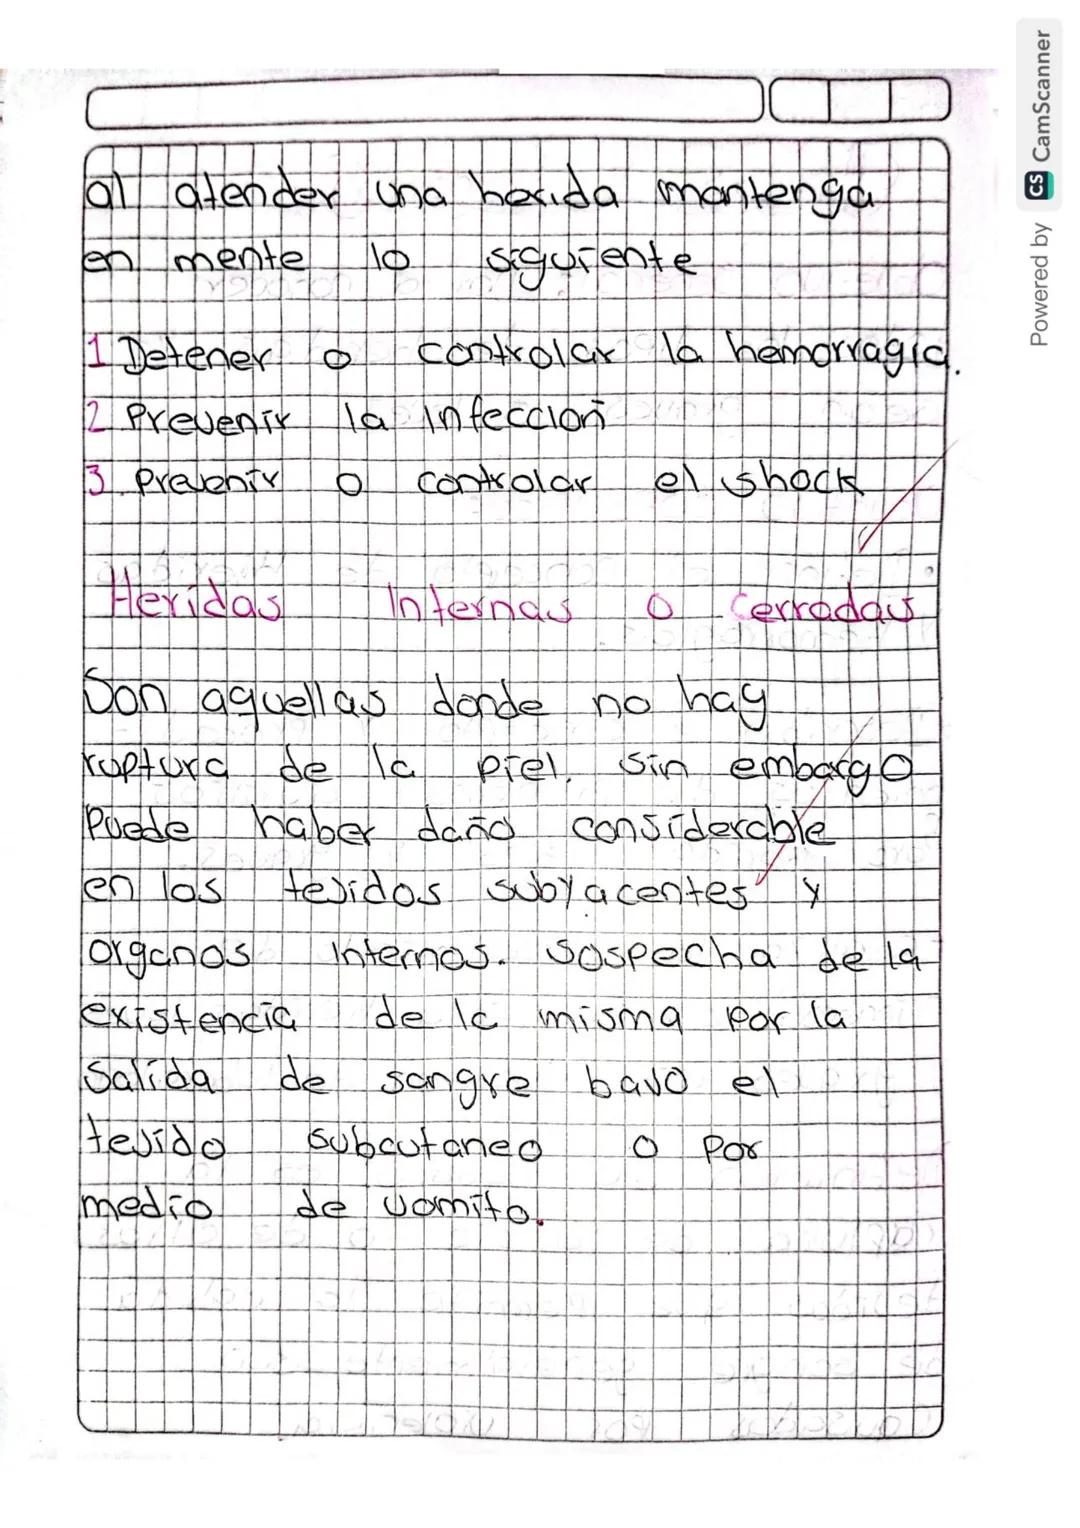 al atender una herida mantenga
en mente lo siguiente
1 Detener o controlar la hemorragia.
2 Prevenir la infeccion
3. Prevenir o controlar el shock
Heridas Internas o cerradas
Son aquellas donde no hay
ruptura de la piel. sin embargo
Puede haber daño considerable
en los tejidos subyacentes y
organos internos. Sospecha de la
existencia de la misma por la
Salida de sangre bajo el
tejido subcutaneo o por
medio de vomito.
Powered by CS CamScanner